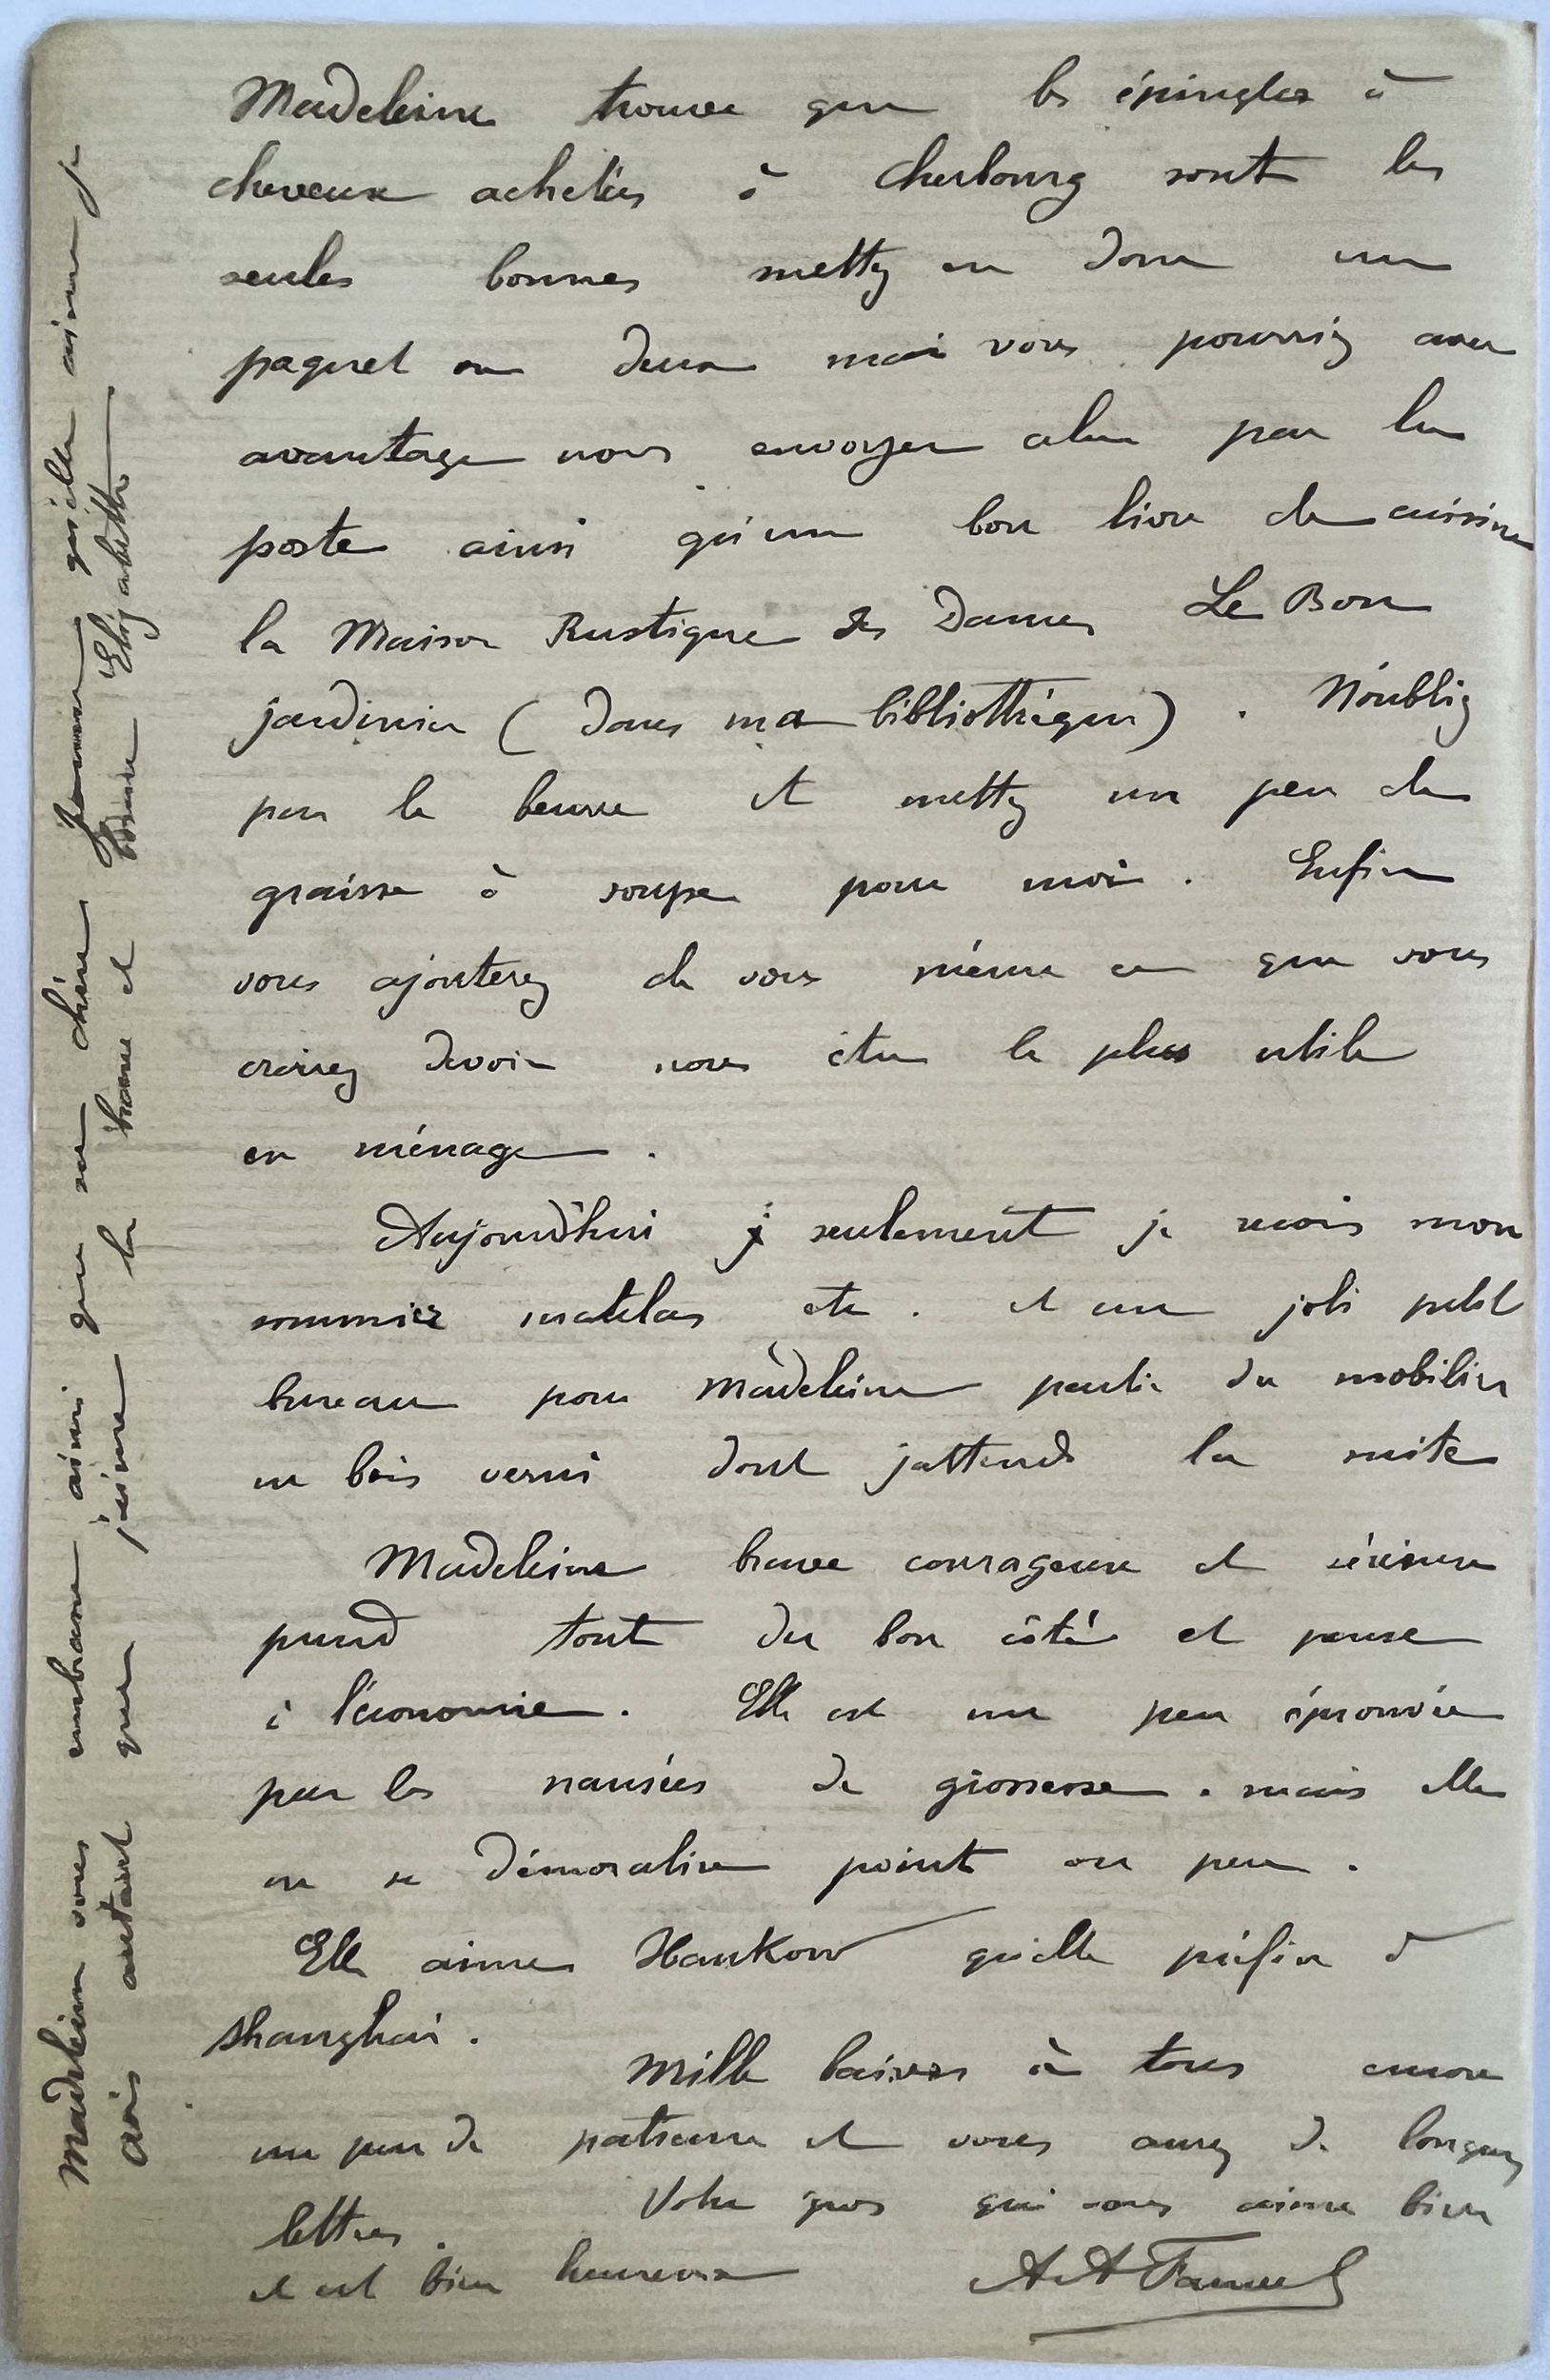 Madeleine trouve que les épingles à
cheveux achetées à Cherbourg sont les
seules bonnes mettez en donc un
paquet ou deux mais vous pourriez avec
avantage nous envoyer cela par la
poste ainsi qu'un bon livre de cuisine
la Maison Rustique des Dames Le Bon
jardinier (dans ma bibliothèque). N'oubliez
pas le beurre et mettez un peu de
graisse à soupe pour moi. Enfin
vous ajouterez de vous même ce que vous
croirez devoir nous être le plus utile
en ménage.
Aujourd'hui seulement je reçois mon
sommier matelas etc. et un joli petit
bureau pour Madeleine partie du mobilier
en bois verni dont j'attends la suite
Madeleine brave courageuse et sérieuse
prend tout du bon côté et pense
à l'économie. Elle est un peu éprouvée
par les nausées de grossesse. mais elle
ne se démoralise point ou peu.
Elle aime Hankow qu'elle préfère à
Shanghai.
Mille baisers à tous encore
un peu de patience et vous aurez de longues
lettres. Votre gros qui vous aime bien
et est bien heureux A A Fauvel
Madeleine vous embrasse ainsi que sa chère Jeanne qu'elle aime je
crois autant que j'aime la brave et bonne Elizabeth